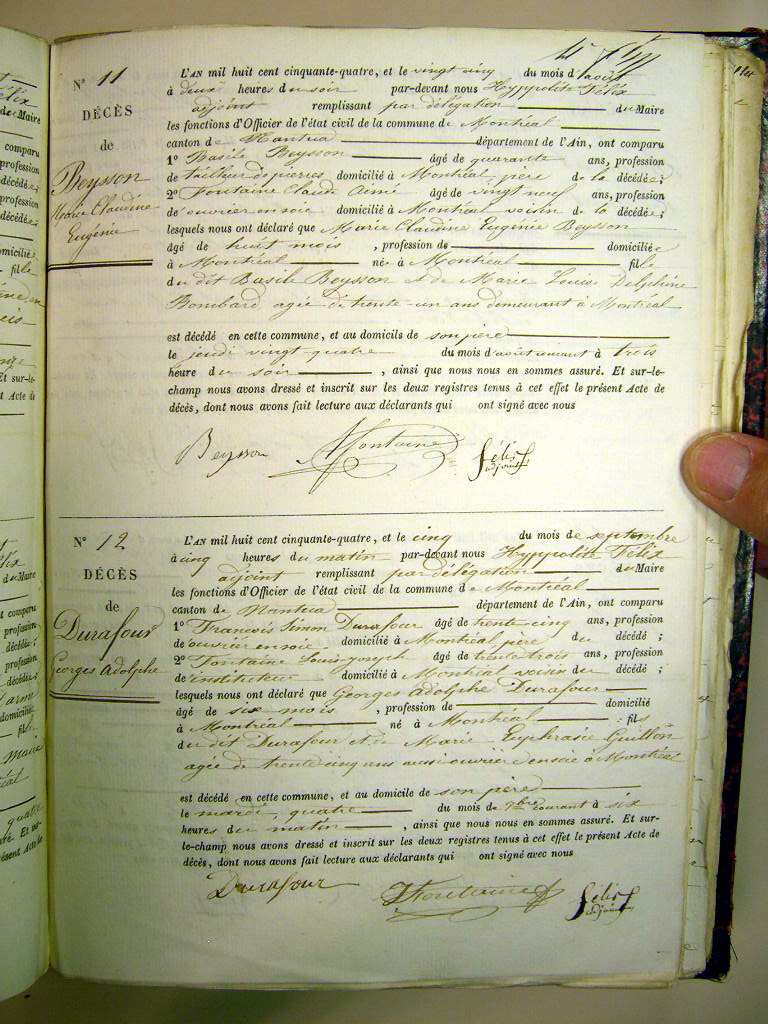 N° 11
DÉCÈS
de
Beysson
Marie Claudine
Eugénie
L'AN mil huit cent cinquante-quatre, et le vingt cinq du mois d'août
à deux heures du soir par-devant nous Hyppolite Félix
adjoint remplissant par délégation du Maire
les fonctions d'Officier de l'état civil de la commune de Montréal
canton de Nantua département de l'Ain, ont comparu
1° Basile Beysson âgé de quarante ans, profession
de tailleur de pierres domicilié à Montréal, père de la décédée;
2° Fontaine Claude Aimé âgé de vingt neuf ans, profession
de ouvrier en soie domicilié à Montréal voisin de la décédée;
lesquels nous ont déclaré que Marie Claudine Eugénie Beysson
âgé de huit mois, profession de domiciliée
à Montréal née à Montréal fille
du dit Basile Beysson et de Marie Louise Delphine
Bombard agée de trente-un ans demeurant à Montréal
est décédé en cette commune, et au domicile de son père
le jeudi vingt quatre du mois d'août courant à trois
heure du soir, ainsi que nous nous en sommes assuré. Et sur-le-
champ nous avons dressé et inscrit sur les deux registres tenus à cet effet le présent Acte de
décès, dont nous avons fait lecture aux déclarants qui ont signé avec nous
Beysson Fontaine Félix adjoint
N° 12
DÉCÈS
de
Durafour
Georges Adolphe
L'AN mil huit cent cinquante-quatre, et le cinq du mois de septembre
à cinq heures du matin par-devant nous Hyppolite Félix
adjoint remplissant par délégation du Maire
les fonctions d'Officier de l'état civil de la commune de Montréal
canton de Nantua département de l'Ain, ont comparu
1° François Simon Durafour âgé de trente cinq ans, profession
de ouvrier en soie domicilié à Montréal père du décédé;
2° Fontaine Louis Joseph âgé de trente trois ans, profession
de instituteur domicilié à Montréal voisin du décédé;
lesquels nous ont déclaré que Georges Adolphe Durafour
âgé de six mois, profession de domicilié
à Montréal né à Montréal fils
du dit Durafour et de Marie Euphrasie Guillon
agée de trente cinq ans aussi ouvrière en soie à Montréal
est décédé en cette commune, et au domicile de son père
le mardi, quatre du mois de 7bre courant à six
heures du matin, ainsi que nous nous en sommes assuré. Et sur-
le-champ nous avons dressé et inscrit sur les deux registres tenus à cet effet le présent Acte de
décès, dont nous avons fait lecture aux déclarants qui ont signé avec nous
Durafour Fontaine Félix adjoint